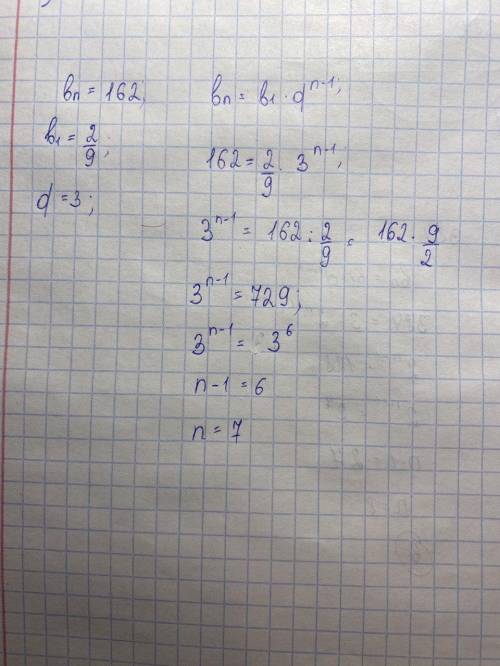 вn = 162;
в1 = 2/9;
d = 3;
вn = в1 · d^(n-1);
162 = 2/9 · 3^(n-1);
3^(n-1) = 162 : 2/9 = 162 · 9/2
3^(n-1) = 729;
3^(n-1) = 3^6
n-1 = 6
n = 7